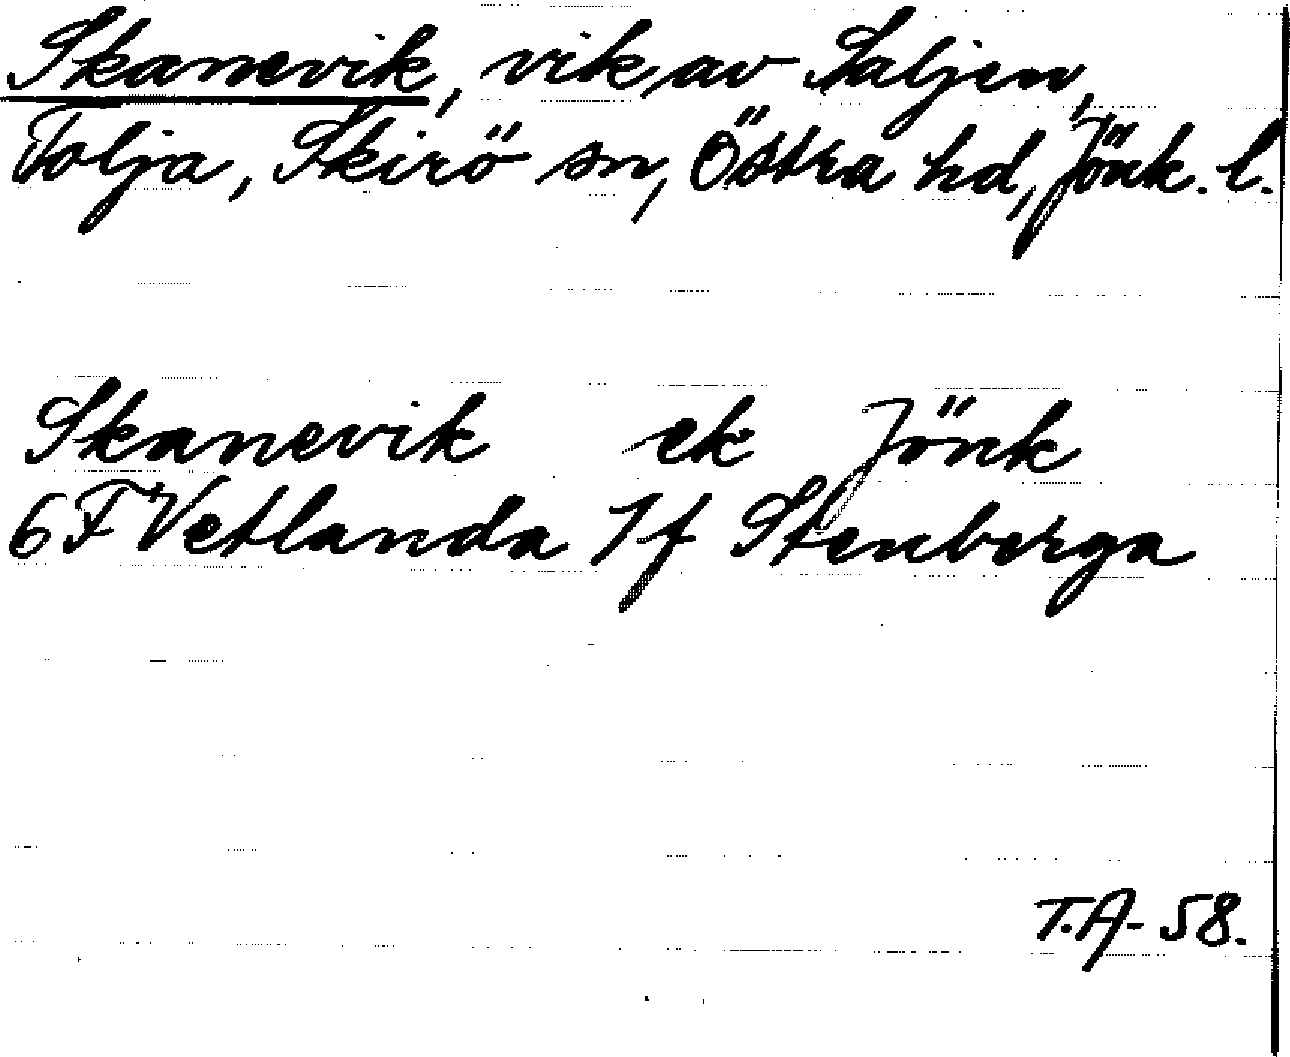 Skanevik, vik av Saljen,
Tolja, Skirö sn, Östra hd, Jönk. l.
Skanevik ek Jönk
6F Vetlanda 7f Stenberga
T.A- 58.